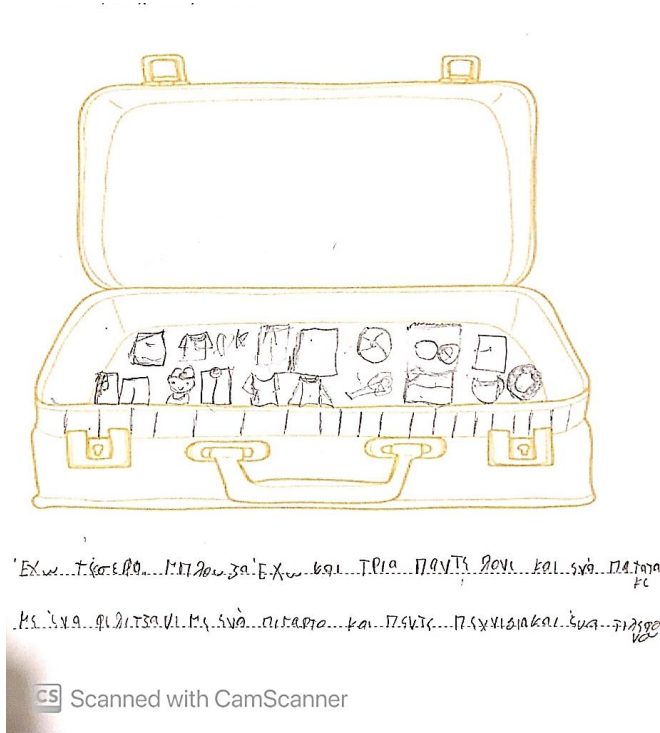 Έχω τέσερα μπλουζα Έχω και τρια παντελονι και ενα πατατα κε
Με ένα φιλιτζανι με ενα πιταριο και πεντε πεχνιδια και ένα τιλεφο νο
CS Scanned with CamScanner